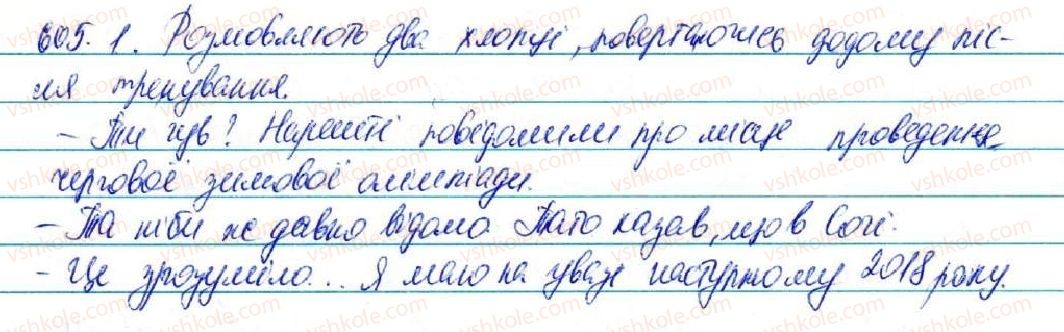 605. 1. Розмовляють два хлопці, повертаючись додому піс-
ля тренування.
– Ти чув? Нарешті повідомили про місце проведення
чергової зимової олімпіади.
– Та ніби же давно відомо. Тато казав, що в Сочі.
– Це зрозуміло... Я маю на увазі наступному 2018 року.